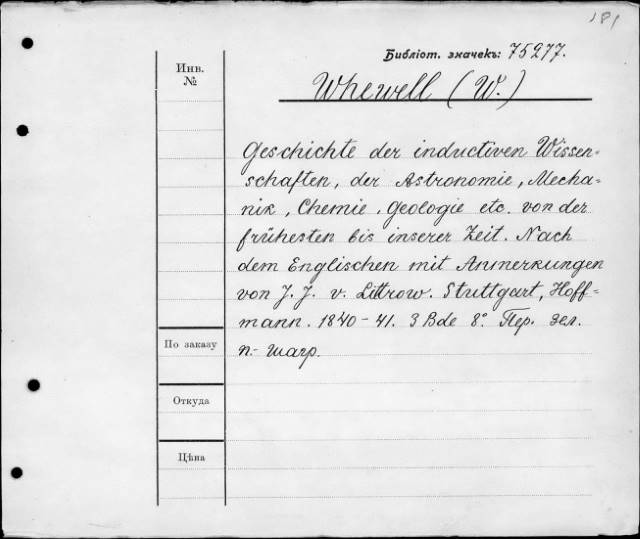 181
Библіот. значекъ: 75277.
Инв.
№
Whewell (W.)
Geschichte der inductiven Wissen-
schaften, der Astronomie, Mecha-
nik, Chemie, Geologie etc. von der
frühesten bis inserer Zeit. Nach
dem Englischen mit Anmerkungen
von J. J. v. Littrow. Stuttgart, Hoff-
mann. 1840-41. 3 Bde 8°. Пер. зел.
п.- шагр.
По заказу
Откуда
Цѣна